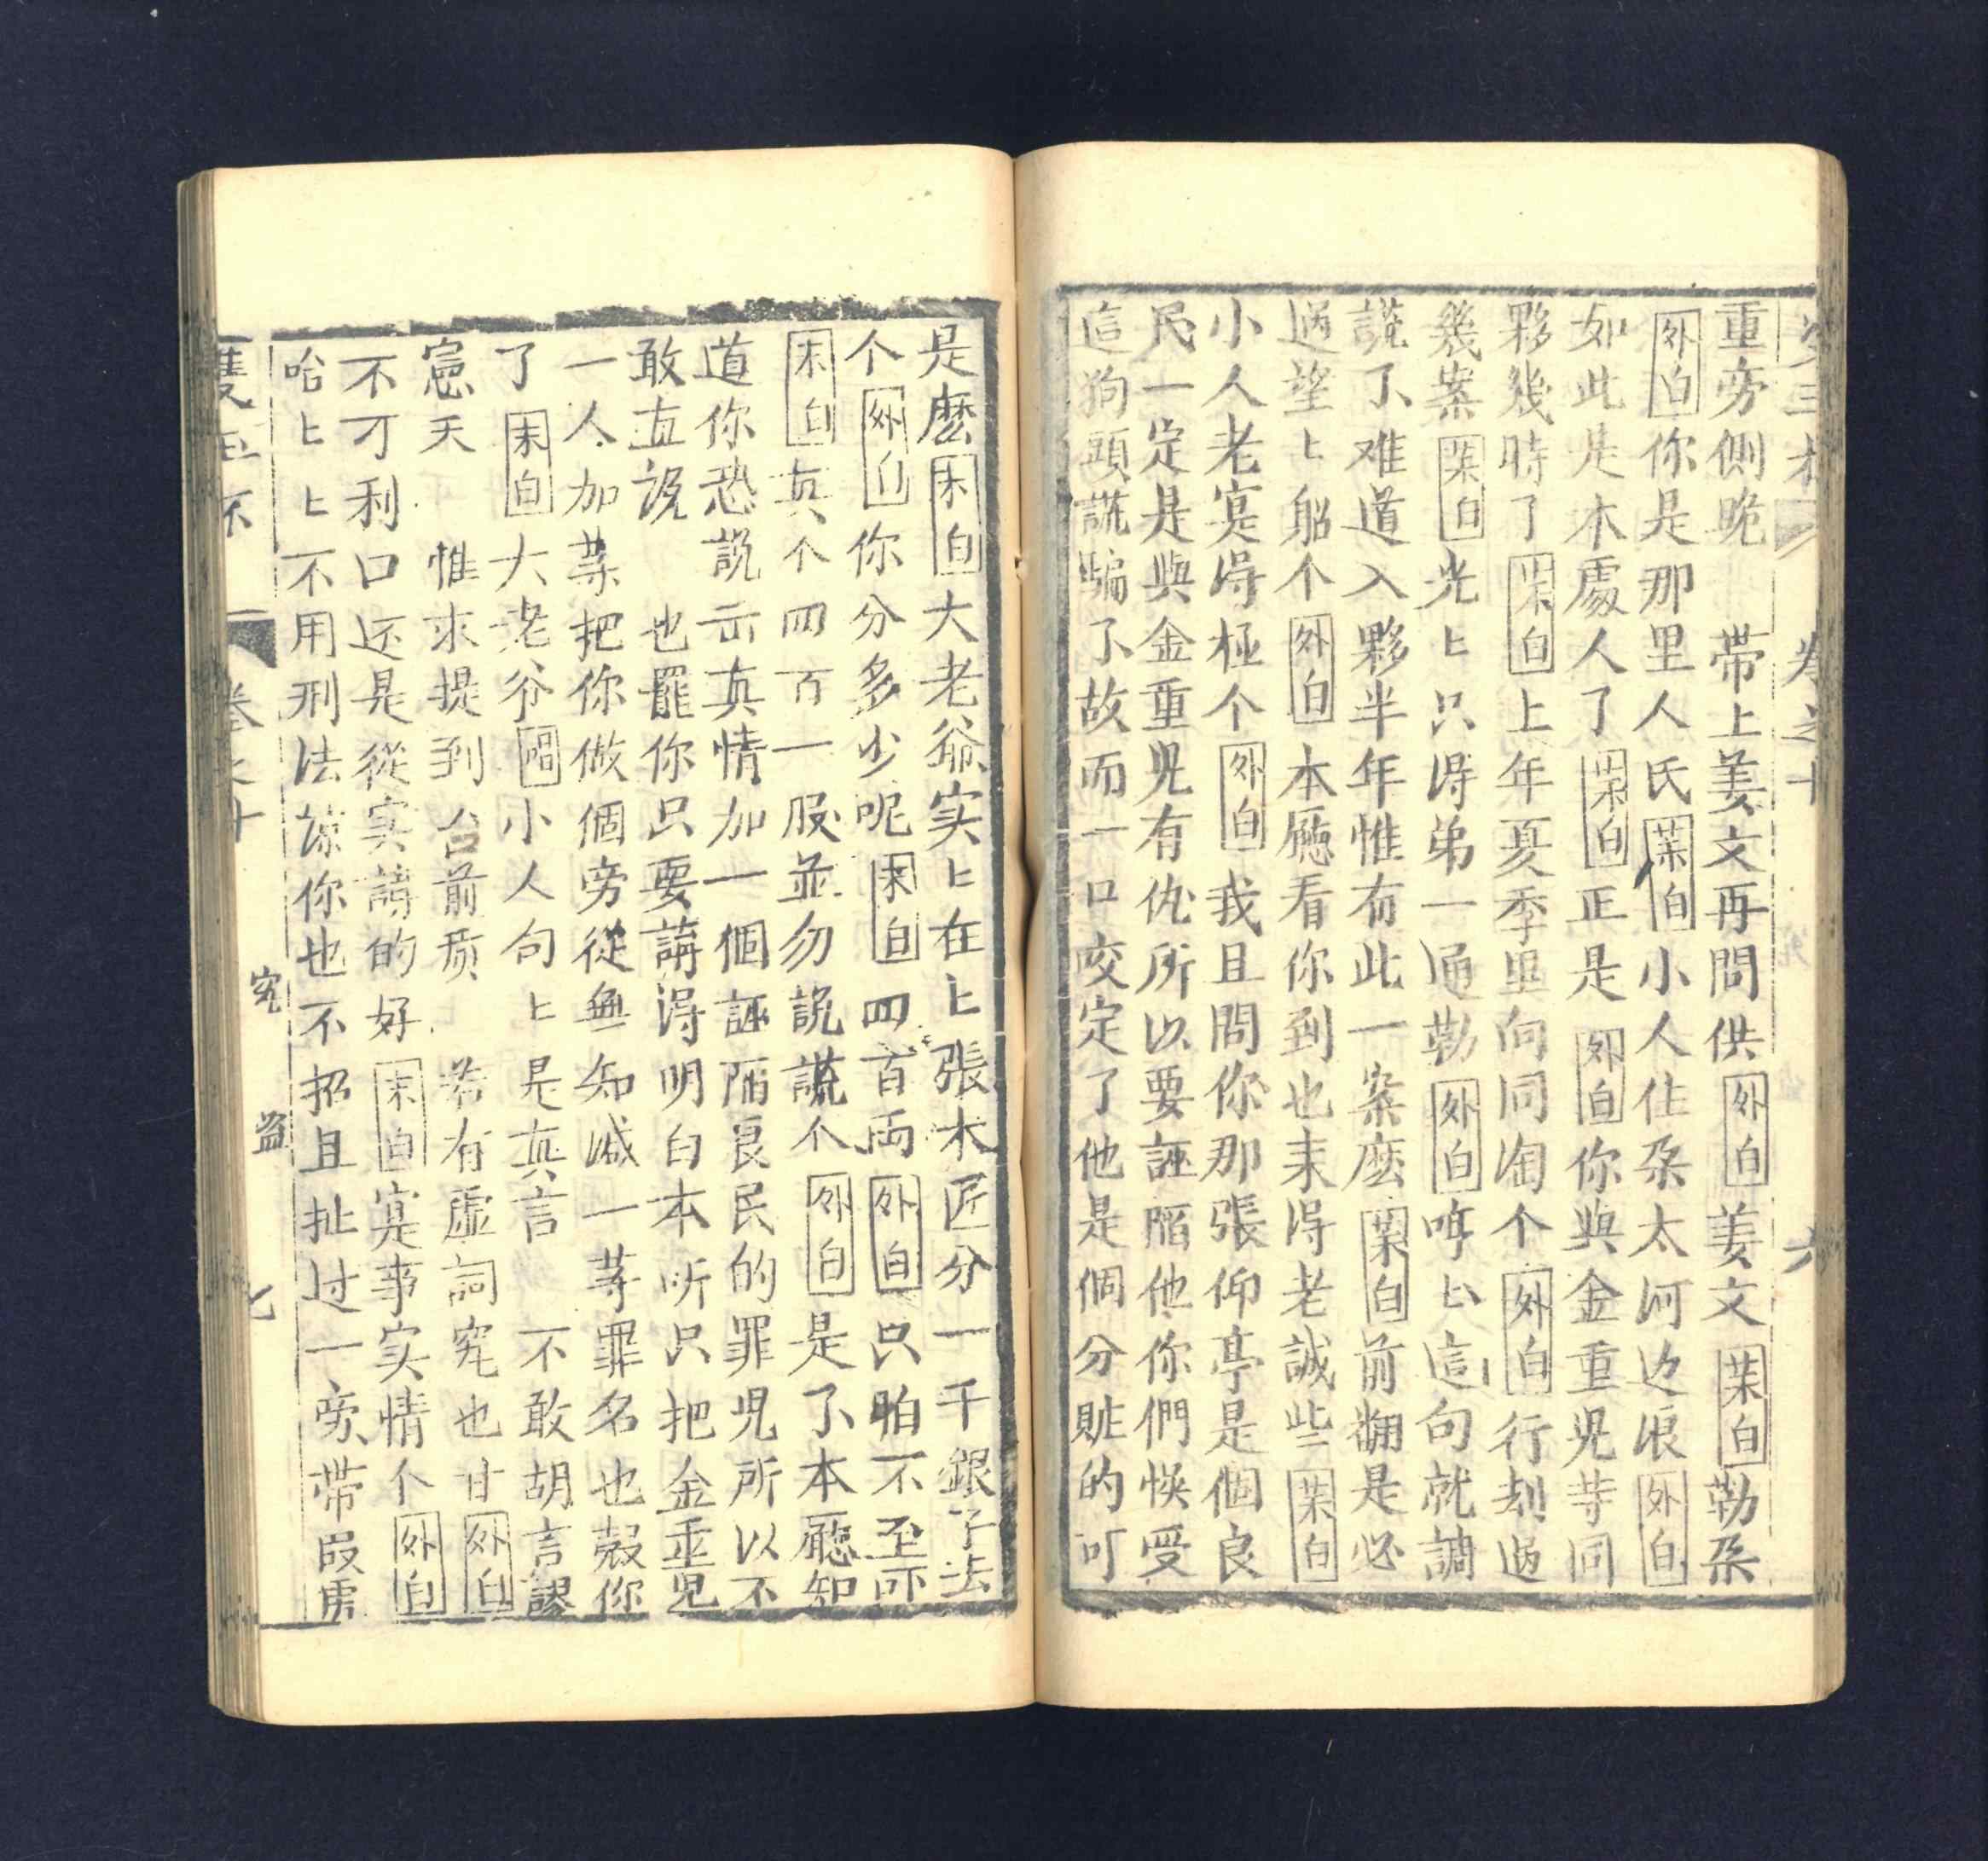 重旁側跪　帶上姜文再問供外白姜文茉白勒朶
外白你是那里人氏茉白小人住朶太河边浪外白
如此是木處人了茉白正是外白你與金重兒等同
夥幾時了茉白上年夏季里向同淘个外白行刼過
幾案茉白光匕只淂弟一遍勒外白呼匕這句就謊
謊了难道入夥半年惟有此一案麽茉白前翻是必
過望匕船个外白本廳看你到也耒淂老誠些茉白
小人老寔淂極个外白我且問你那張仰亭是個良
民一定是與金重兒有仇所以要誣陷他你們悞受
這狗頭謊騙了故而一口咬定了他是個分賍的可
是麽末白大老爺实匕在匕張木匠分一千銀子去
个外白你分多少呢末白四百両外白只怕不至吓
末白真个四百一股並勿說謊个外白是了本廳知
道你恐說出真情加一個誣陷良民的罪兒所以不
敢直說　也罷你只要講淂明白本听只把金重兒
一人加等把你做個旁從無知減一等罪名也殺你
了末白大老爷唱小人句匕是真言　不敢胡言謬
憲天　惟求提到台前质　若有虛詞究也甘外白
不可利口还是從实講的好末白寔事实情个外白
哈匕匕不用刑法諒你也不招且扯过一旁帶叚勇
雙玉杯　卷之十　究盜　七